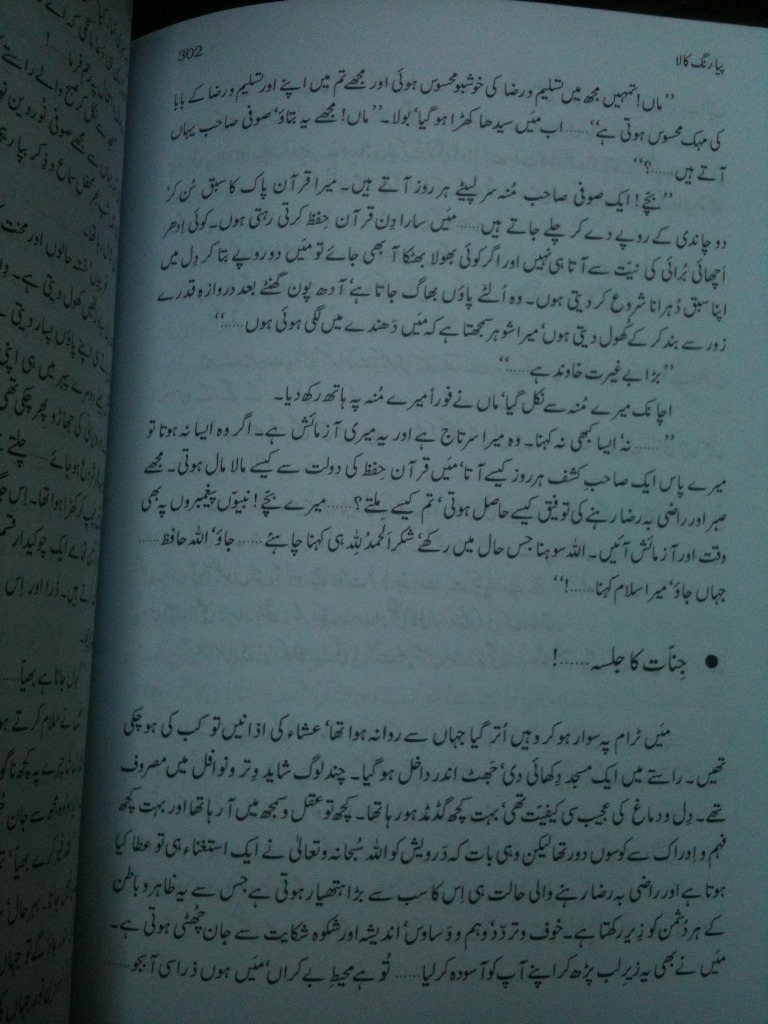 پیا رنگ کالا
302
’’ماں! تمہیں مجھ میں تسلیم و رضا کی خوشبو محسوس ہوئی اور مجھے تم میں اپنے اور تسلیم و رضا کے بابا
کی مہک محسوس ہوتی ہے‘‘...... اب مَیں سیدھا کھڑا ہو گیا‘ بولا۔ ’’ماں! مجھے یہ بتاؤ‘ صوفی صاحب یہاں
آتے ہیں......؟‘‘
’’بچّے! ایک صوفی صاحب مُنہ سر لپیٹے ہر روز آتے ہیں۔ میرا قرآن پاک کا سبق سُن کر‘
دو چاندی کے روپے دے کر چلے جاتے ہیں...... مَیں سارا دِن قرآن حِفظ کرتی رہتی ہوں۔ کوئی اِدھر
اَچھائی بُرائی کی نیّت سے آتا ہی نہیں اور اگر کوئی بھولا بھٹکا آ بھی جائے تو مَیں دو روپے بتا کر دِل میں
اپنا سبق دُہرانا شروع کر دیتی ہوں۔ وہ اُلٹے پاؤں بھاگ جاتا ہے‘ آدھ پون گھنٹے بعد دروازہ قدرے
زور سے بند کر کے کُھول دیتی ہوں‘ میرا شوہر سمجھتا ہے کہ مَیں دَھندے میں لگی ہوئی ہوں......‘‘
’’بڑا بے غیرت خاوند ہے......‘‘
اچانک میرے مُنہ سے نکل گیا‘ ماں نے فوراً میرے مُنہ پہ ہاتھ رکھ دیا۔
’’...... نہ‘ ایسا کبھی نہ کہنا۔ وہ میرا سرتاج ہے اور یہ میری آزمائش ہے۔ اگر وہ ایسا نہ ہوتا تو
میرے پاس ایک صاحبِ کشف ہر روز کیسے آتا‘ مَیں قرآن حِفظ کی دولت سے کیسے مالا مال ہوتی۔ مجھے
صبر اور راضی بہ رضا رہنے کی توفیق کیسے حاصل ہوتی‘ تم کیسے مِلتے؟...... میرے بچّے! نبیوں‘ پیغمبروں پہ بھی
وقت اور آزمائش آئیں۔ اللہ سوہنا جس حال میں رکھّے‘ شکر اَلحمدُ لِلّٰہ ہی کہنا چاہیئے...... جاؤ‘ اللہ حافظ......
جہاں جاؤ‘ میرا سلام کہنا......!‘‘
• جِنّات کا جلسہ......!
مَیں ٹرام پہ سوار ہو کر وہیں اُتر گیا جہاں سے روانہ ہوا تھا‘ عشاء کی اذانیں تو کب کی ہو چکی
تھیں۔ راستے میں ایک مسجد دِکھائی دی‘ جَھٹ اندر داخل ہو گیا۔ چند لوگ شاید وِتر و نوافل میں مصروف
تھے۔ دِل و دماغ کی عجیب سی کیفیّت تھی‘ بہت کچھ گڈمڈ ہو رہا تھا۔ کچھ تو عقل و سمجھ میں آ رہا تھا اور بہت کچھ
فہم و اِدراک سے کوسوں دور تھا لیکن وہی بات کہ دَرویش کو اللہ سُبحانہ و تعالیٰ نے ایک استغناء ہی تو عطا کیا
ہوتا ہے اور راضی بہ رضا رہنے والی حالت ہی اِس کا سب سے بڑا ہتھیار ہوتی ہے جس سے یہ ظاہر و باطن
کے ہر دُشمن کو زیر رکھتا ہے۔ خوف و تردّد‘ وہم و وَساوس‘ اندیشہ اور شکوہ شکایت سے جان چُھٹی ہوتی ہے۔
مَیں نے بھی یہ زیرِ لب پڑھ کر اپنے آپ کو آسودہ کر لیا...... تُو ہے محیطِ بے کراں‘ مَیں ہوں ذرا سی آبجو......